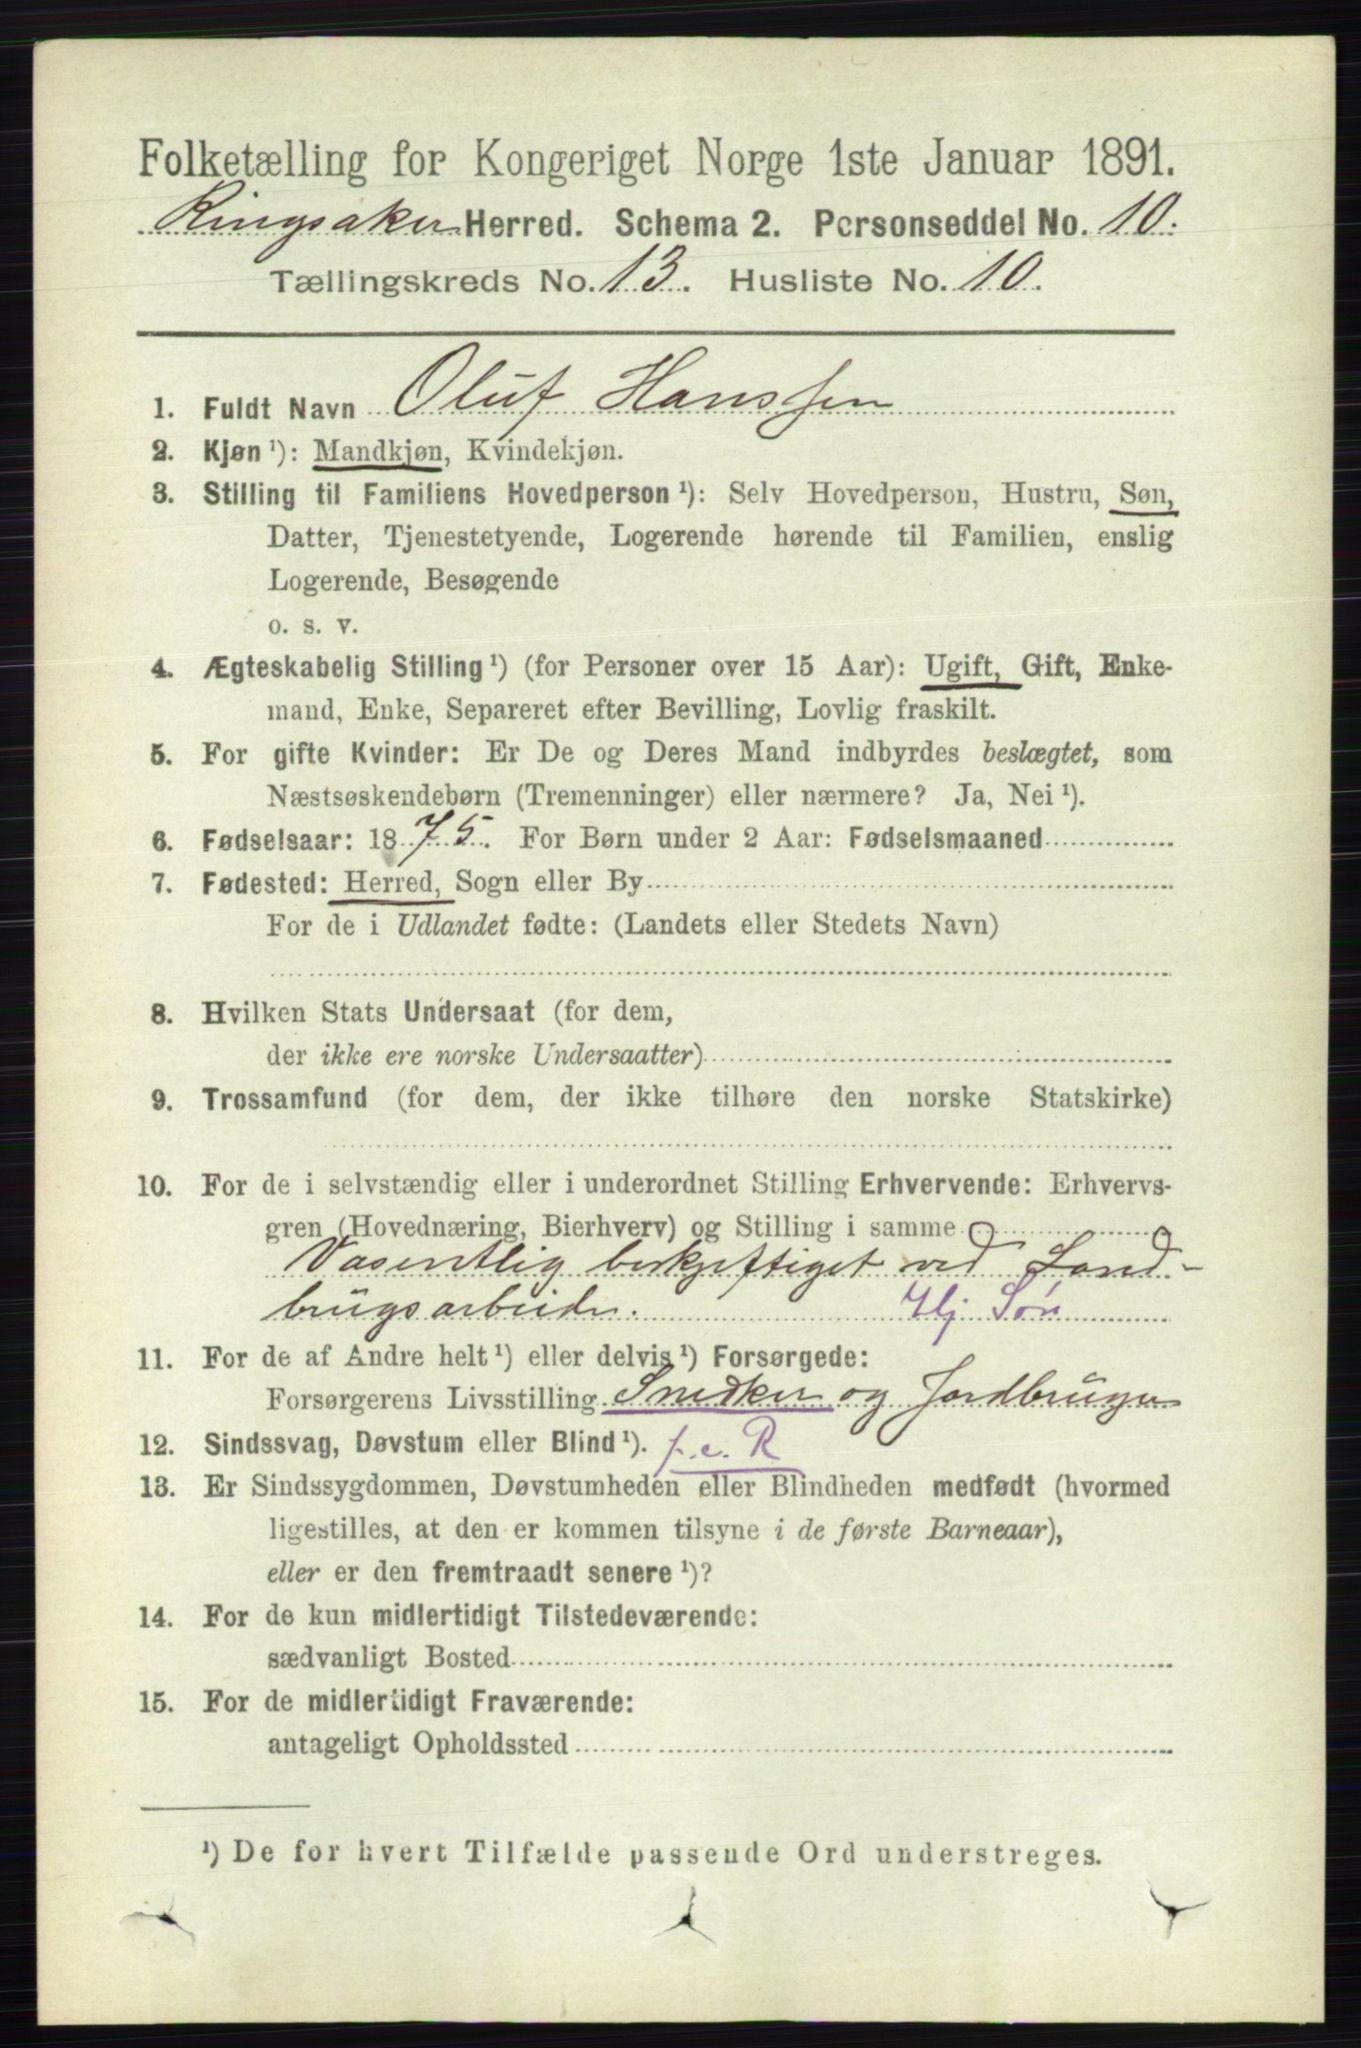 Folketælling for Kongeriget Norge 1ste Januar 1891.
Ringsaker Herred. Schema 2. Personseddel No. 10.
Tællingskreds No. 13. Husliste No. 10.
1. Fuldt Navn Oluf Hanssen
2. Kjøn ¹): Mandkjøn, Kvindekjøn.
3. Stilling til Familiens Hovedperson ¹): Selv Hovedperson, Hustru, Søn,
Datter, Tjenestetyende, Logerende hørende til Familien, enslig
Logerende, Besøgende
o. s. v.
4. Ægteskabelig Stilling ¹) (for Personer over 15 Aar): Ugift, Gift, Enke-
mand, Enke, Separeret efter Bevilling, Lovlig fraskilt.
5. For gifte Kvinder: Er De og Deres Mand indbyrdes beslægtet, som
Næstsøskendebørn (Tremenninger) eller nærmere? Ja, Nei ¹).
6. Fødselsaar: 1875. For Børn under 2 Aar: Fødselsmaaned
7. Fødested: Herred, Sogn eller By
For de i Udlandet fødte: (Landets eller Stedets Navn)
8. Hvilken Stats Undersaat (for dem,
der ikke ere norske Undersaatter)
9. Trossamfund (for dem, der ikke tilhøre den norske Statskirke)
10. For de i selvstændig eller i underordnet Stilling Erhvervende: Erhvervs-
gren (Hovednæring, Bierhverv) og Stilling i samme
Vasentlig beskjeftiget ved Land-
brugsarbeide. Hj Søn
11. For de af Andre helt ¹) eller delvis ¹) Forsørgede:
Forsørgerens Livsstilling Snedker og Jordbruger
12. Sindssvag, Døvstum eller Blind ¹). f. c. R
13. Er Sindssygdommen, Døvstumheden eller Blindheden medfødt (hvormed
ligestilles, at den er kommen tilsyne i de første Barneaar),
eller er den fremtraadt senere ¹)?
14. For de kun midlertidigt Tilstedeværende:
sædvanligt Bosted
15. For de midlertidigt Fraværende:
antageligt Opholdssted
¹) De for hvert Tilfælde passende Ord understreges.